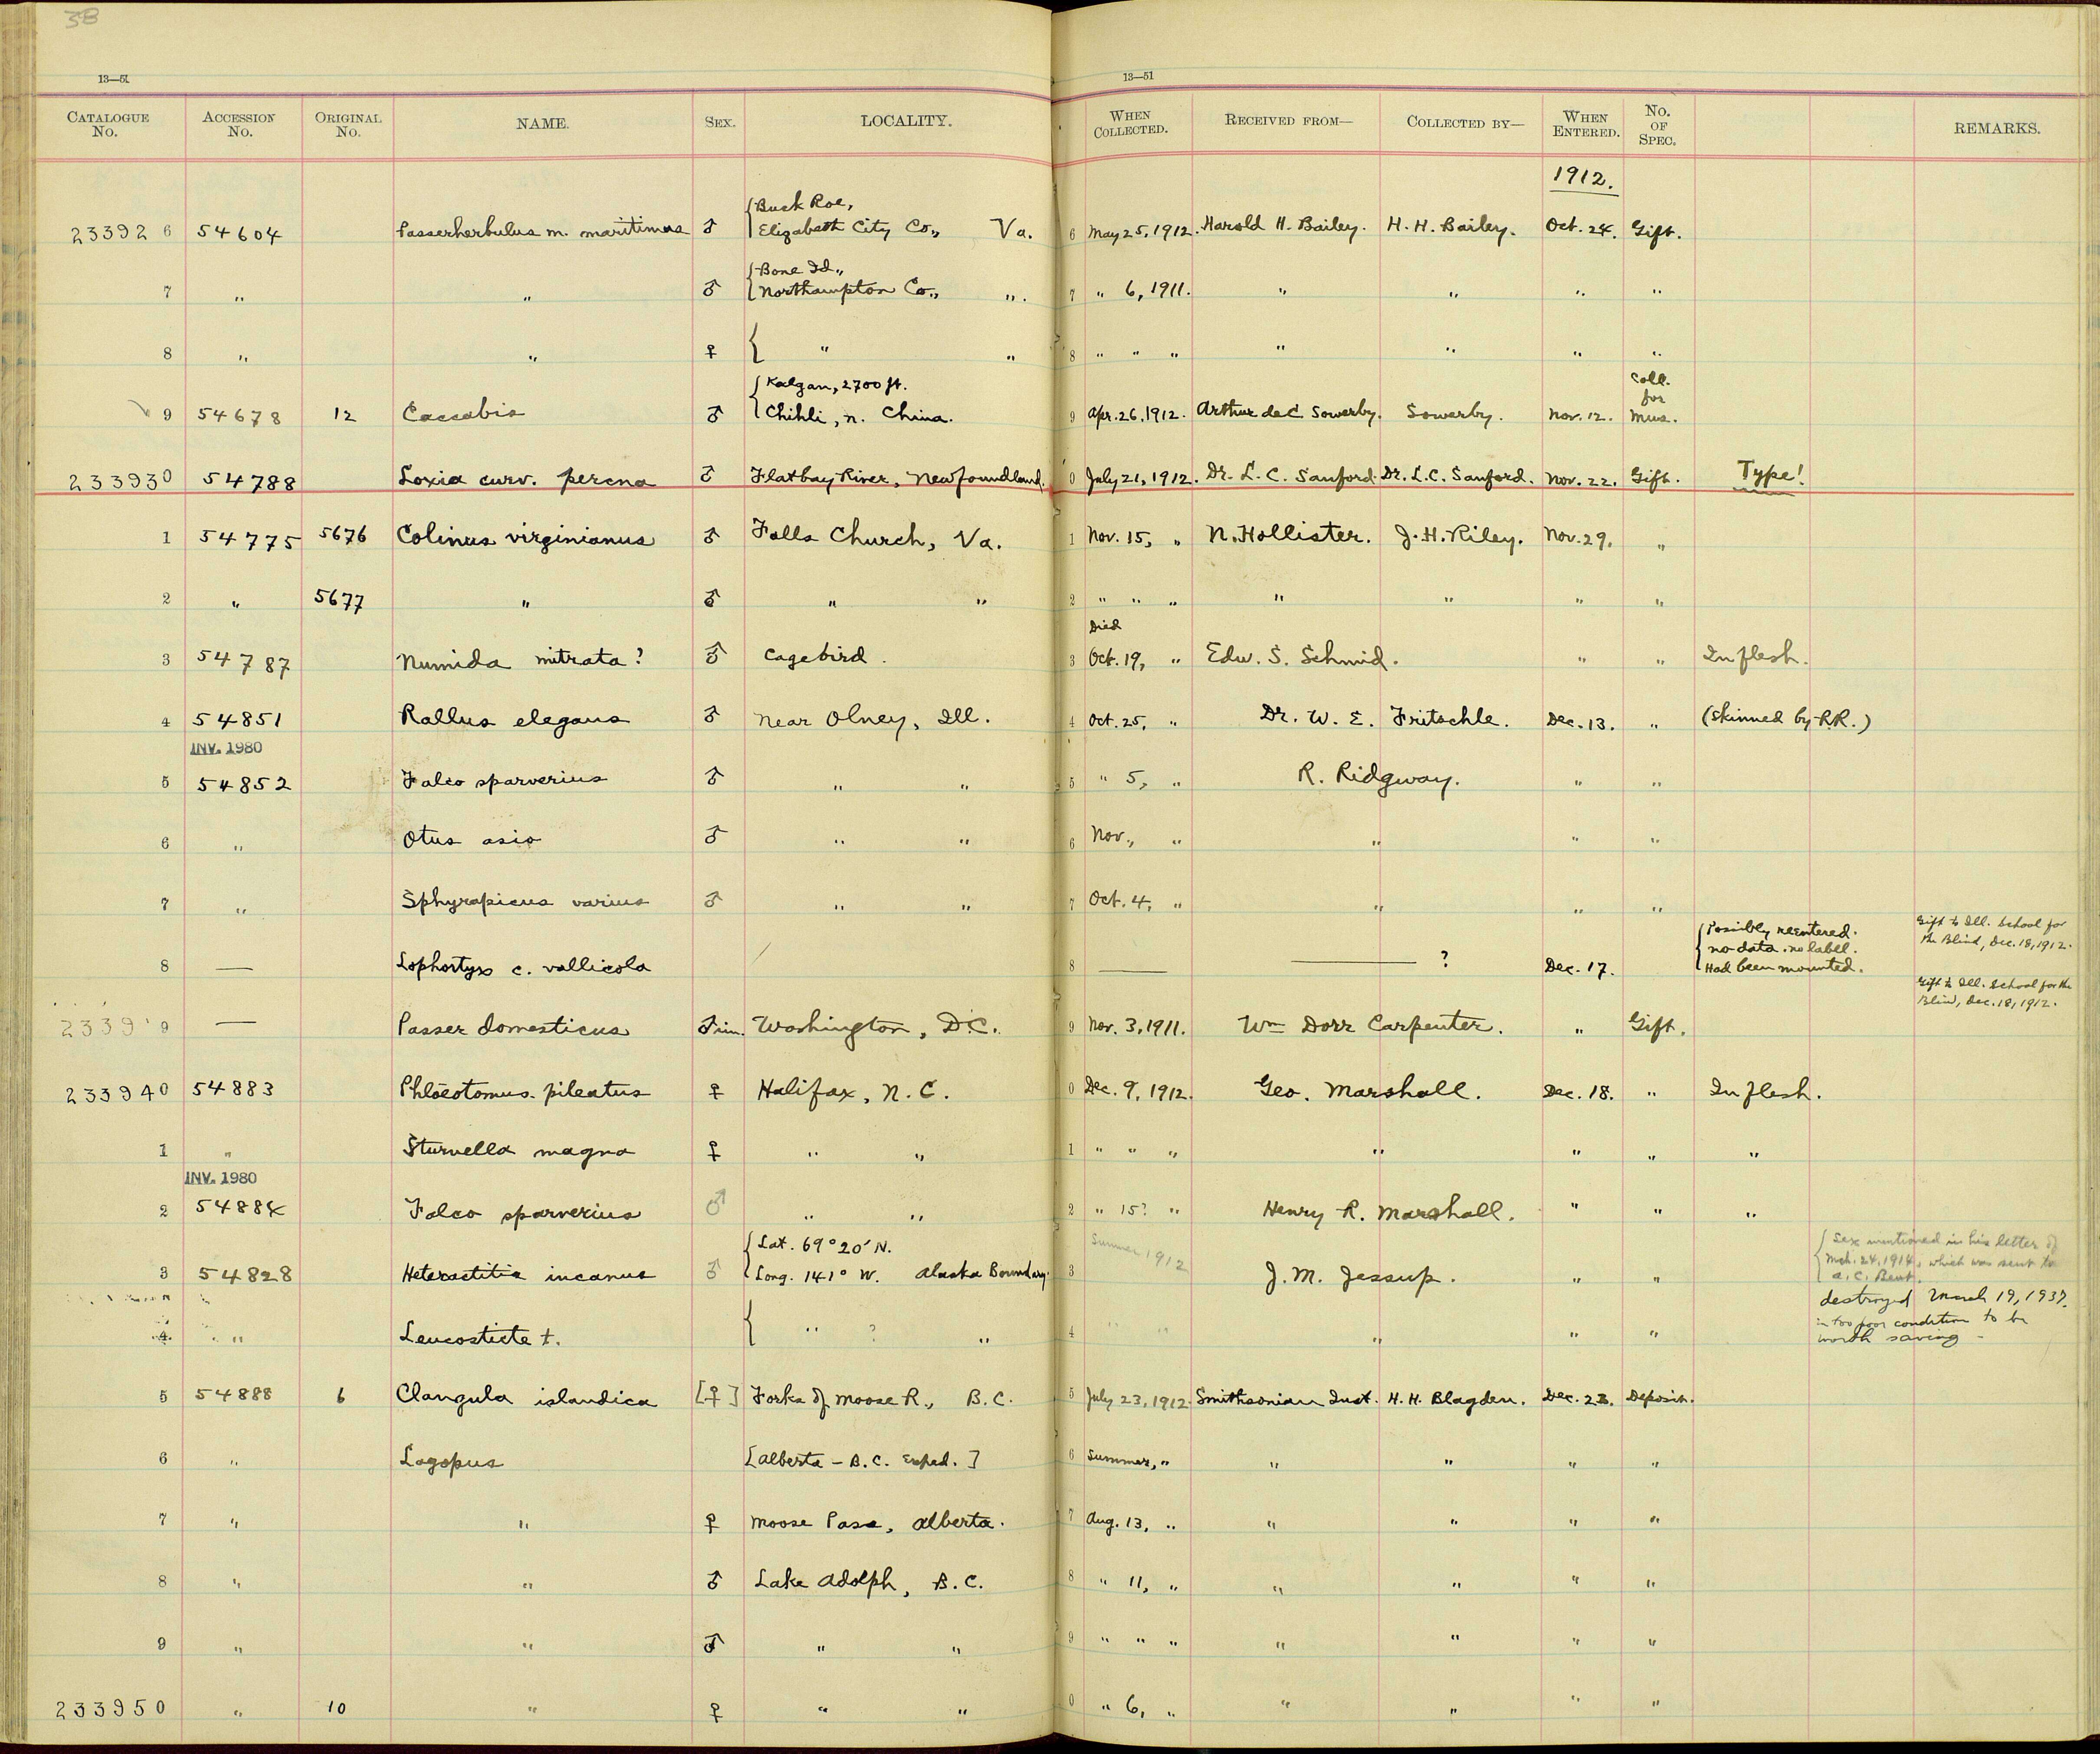 38
13—51 13—51
CATALOGUE No. ACCESSION No. ORIGINAL No. NAME. SEX. LOCALITY. WHEN COLLECTED. RECEIVED FROM— COLLECTED BY— WHEN ENTERED. No. OF SPEC. REMARKS.
1912.
233926 54604 Passerherbulus m. maritimus ♂ { Buck Roe, Elizabeth City Co., Va. 6 May 25, 1912. Harold H. Bailey. H. H. Bailey. Oct. 24. Gift.
7 " " ♂ { Bone Id., Northampton Co., ". 7 " 6, 1911. " " " "
8 " " ♀ { " " 8 " " " " " " "
9 54678 12 Caccabis ♂ { Kalgan, 2700 ft. Chihli, n. China. 9 Apr. 26, 1912. Arthur deC Sowerby. Sowerby. Nov. 12. Coll. for Mus.
233930 54788 Loxia curv. percna ♂ Flatbay River, Newfoundland. 0 July 21, 1912. Dr. L. C. Sanford. Dr. L. C. Sanford. Nov. 22. Gift. Type!
1 54775 5676 Colinus virginianus ♂ Falls Church, Va. 1 Nov. 15, " N. Hollister. J. H. Riley. Nov. 29. "
2 " 5677 " ♂ " " 2 " " " " " " "
3 54787 Numida mitrata? ♂ Cagebird. 3 Died Oct. 19, " Edw. S. Schmid. " " In flesh.
4 54851 Rallus elegans ♂ Near Olney, Ill. 4 Oct. 25, " Dr. W. E. Fritschle. Dec. 13. " (Skinned by R.R.)
INV. 1980
5 54852 Falco sparverius ♂ " " 5 " 5, " R. Ridgway. " "
6 " Otus asio ♂ " " 6 Nov., " " " "
7 " Sphyrapicus varius ♂ " " 7 Oct. 4, " " " "
8 — Lophortyx c. vallicola 8 — — ? Dec. 17. { Possibly reentered. no data. no label. Had been mounted. Gift to Ill. School for the Blind, Dec. 18, 1912.
2339 9 — Passer domesticus ♂ im. Washington, D.C. 9 Nov. 3, 1911. Wm Dorr Carpenter. " Gift. Gift to Ill. School for the Blind, Dec. 18, 1912.
233940 54883 Phloeotomus pileatus ♀ Halifax, N. C. 0 Dec. 9, 1912. Geo. Marshall. Dec. 18. " In flesh.
1 " Sturnella magna ♀ " " 1 " " " " " " "
INV. 1980
2 54884 Falco sparverius ♂ " " 2 " 15? " Henry R. Marshall. " " "
3 54828 Heteractitis incanus ♂ { Lat. 69° 20' N. Long. 141° W. Alaska Boundary. 3 Summer 1912 J. M. Jessup. " " { Sex mentioned in his letter of Mch. 24, 1914, which was sent to A. C. Bent.
4 " Leucosticte t. { " ? " 4 " " " " " destroyed March 19, 1937. in too poor condition to be worth saving -
5 54888 6 Clangula islandica [♀] Forks of Moose R., B. C. 5 July 23, 1912. Smithsonian Inst. H. H. Blagden. Dec. 23. Deposit.
6 " Lagopus [Alberta - B. C. Exped.] 6 Summer, " " " " "
7 " " ♀ Moose Pass, Alberta. 7 Aug. 13, " " " " "
8 " " ♂ Lake Adolph, B. C. 8 " 11, " " " " "
9 " " ♂ " " 9 " " " " " " "
233950 " 10 " ♀ " " 0 " 6, " " " " "